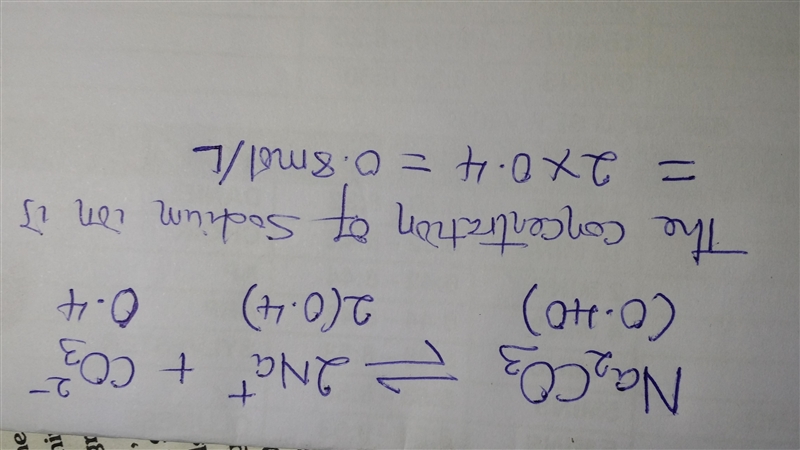 Na₂CO₃ ⇌ 2Na⁺ + CO₃²⁻
(0.40) 2(0.4) 0.4
The concentration of Sodium ion is
= 2×0.4 = 0.8mol/L